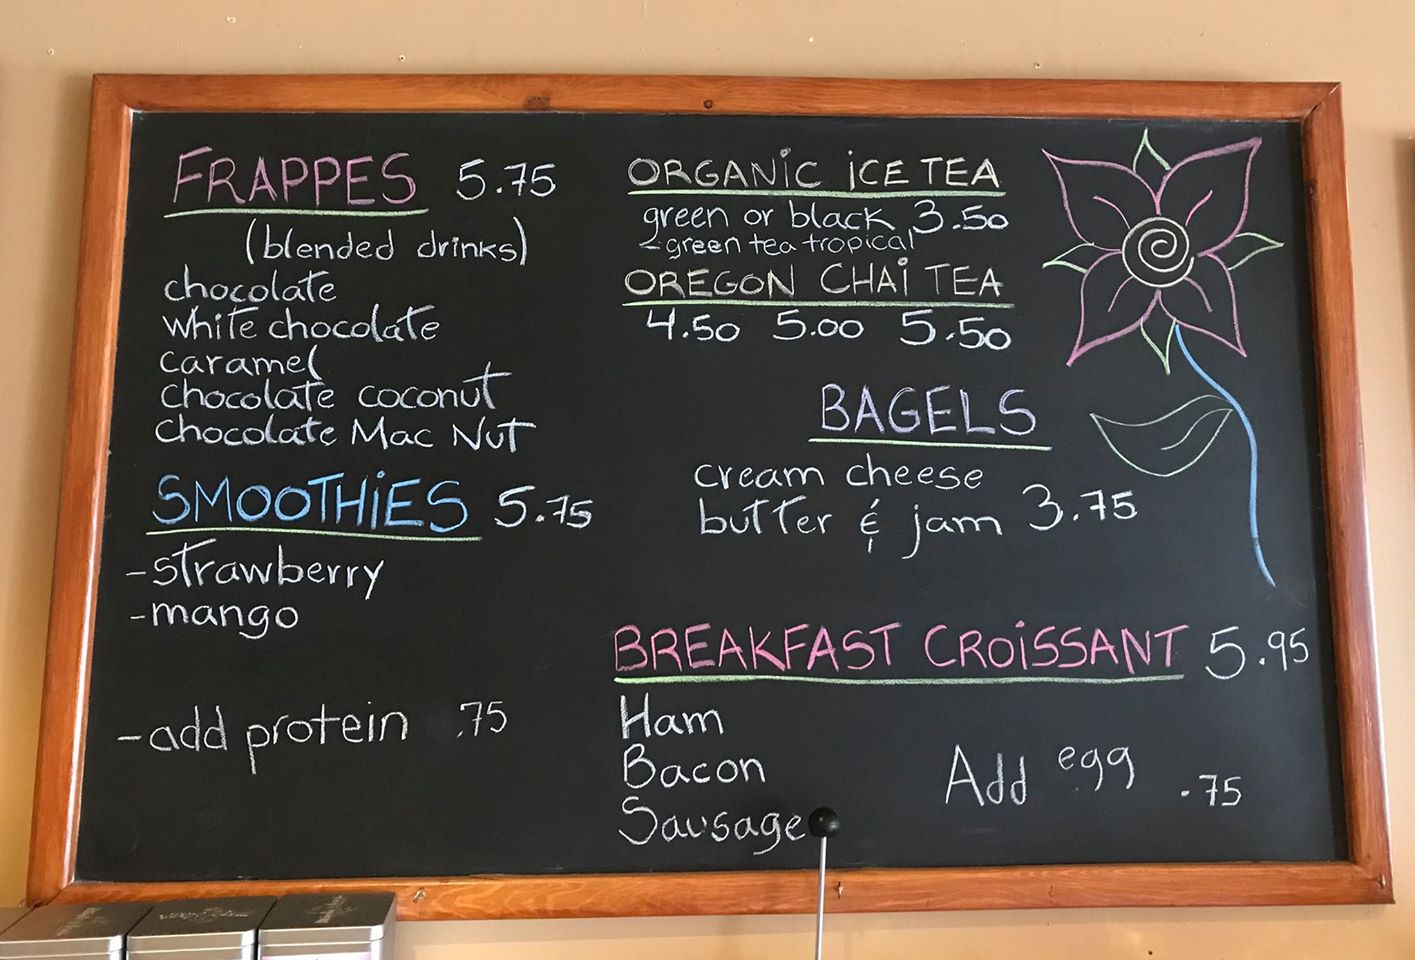 FRAPPES 5.75
(blended drinks)
chocolate
white chocolate
caramel
chocolate coconut
chocolate Mac Nut
SMOOTHiES 5.75
-strawberry
-mango
-add protein .75
ORGANiC iCE TEA
green or black 3.50
-green tea tropical
OREGON CHAi TEA
4.50 5.00 5.50
BAGELS
cream cheese
butter & jam 3.75
BREAKFAST CROiSSANT 5.95
Ham
Bacon
Sausage
Add egg .75